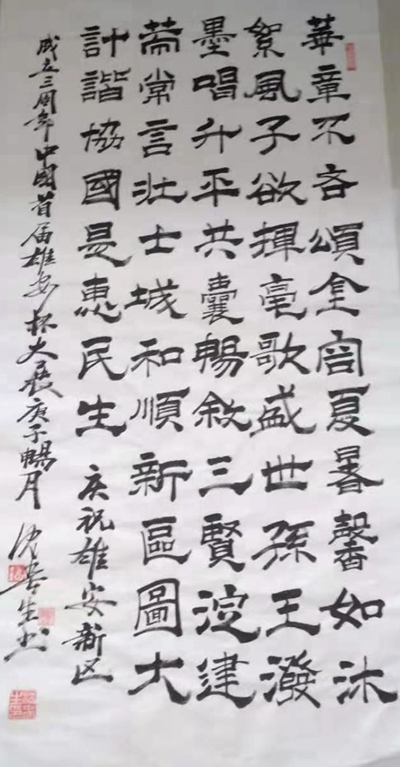 華章不吝頌金夏馨如沐
絮風子欲揮毫歌盛世孫王潑
墨唱升平共囊暢敘三賢淀
常言壯士城和順新區圖大
計諧協國是惠民生 庆祝雄安新区
成立三周年中國首届雄安杯大展庚子暢月 沈生书